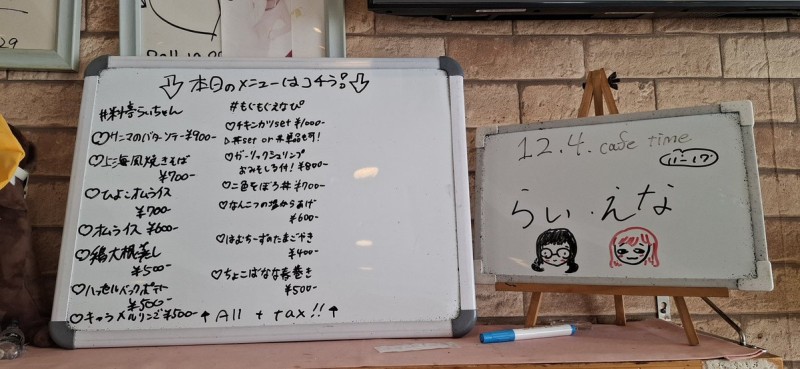 本日のメニューはコチラ!
#料亭らいちゃん
♡サンマのバターソテー ¥900-
♡上海風焼きそば
¥700-
♡ひよこオムライス
¥700-
♡オムライス ¥600-
♡鶏大根蒸し
¥500-
♡ハッセルバックポテト
¥500-
♡キャラメルリンゴ ¥500-
#もぐもぐえなぴ
♡チキンカツset ¥1000-
丼set or 単品も可!
♡ガーリックシュリンプ
おみそしる付! ¥800-
♡二色そぼろ丼 ¥700-
♡なんこつの塩からあげ
¥600-
♡はむちーずのたまごやき
¥400-
♡ちょこばなな春巻き
¥500-
↑ All + tax!! ↑
12.4. cafe time
11-17
らい・えな